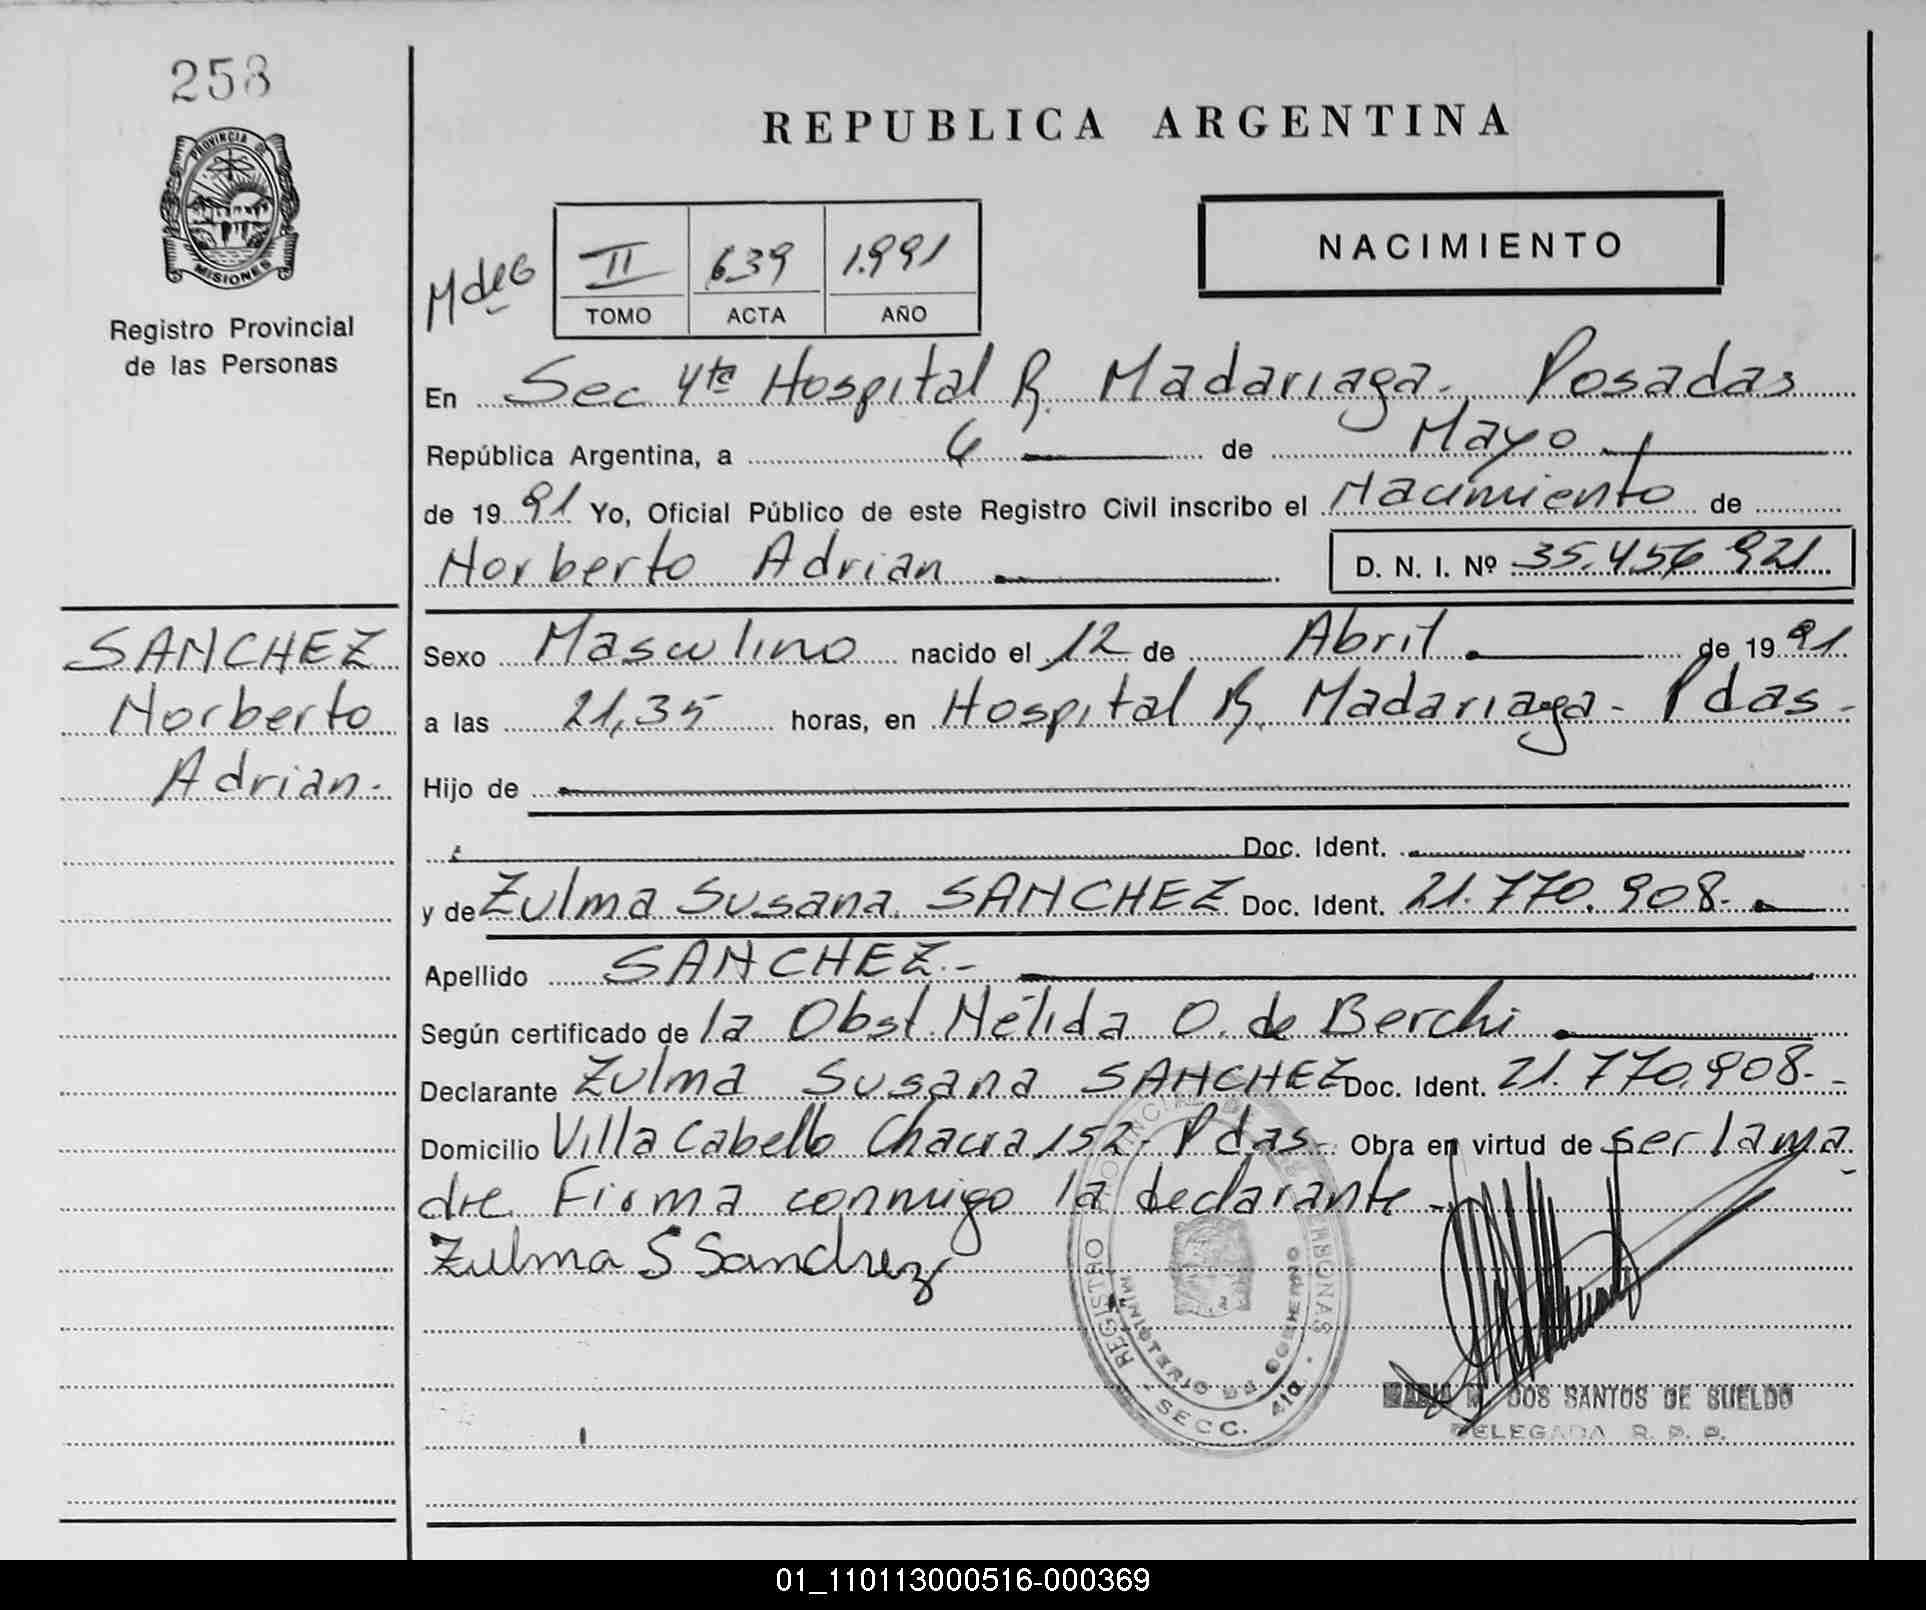 258
PROVINCIA DE
MISIONES
Registro Provincial
de las Personas
REPUBLICA ARGENTINA
NACIMIENTO
MdeG
II 639 1.991
TOMO ACTA AÑO
En Sec 4ta Hospital R. Madariaga. Posadas
República Argentina, a 6 de Mayo
de 19 91 Yo, Oficial Público de este Registro Civil inscribo el Nacimiento de
Norberto Adrian D. N. I. Nº 35.456 921
SANCHEZ
Norberto
Adrian.
Sexo Masculino nacido el 12 de Abril de 19 91
a las 21,35 horas, en Hospital R. Madariaga - Pdas -
Hijo de
Doc. Ident.
y de Zulma Susana SANCHEZ Doc. Ident. 21.770.908.
Apellido SANCHEZ.-
Según certificado de la Obst. Nélida O. de Berchi
Declarante Zulma Susana SANCHEZ Doc. Ident. 21.770.908.-
Domicilio Villa Cabello Chacra 152 - Pdas - Obra en virtud de ser la ma
dre. Firma conmigo la declarante -
Zulma S Sanchez
REGISTRO PROVINCIAL DE LAS PERSONAS
MINISTERIO DE GOBIERNO
SECC. 4ta.
MARIA M. DOS SANTOS DE SUELDO
DELEGADA R. P. P.
01_110113000516-000369